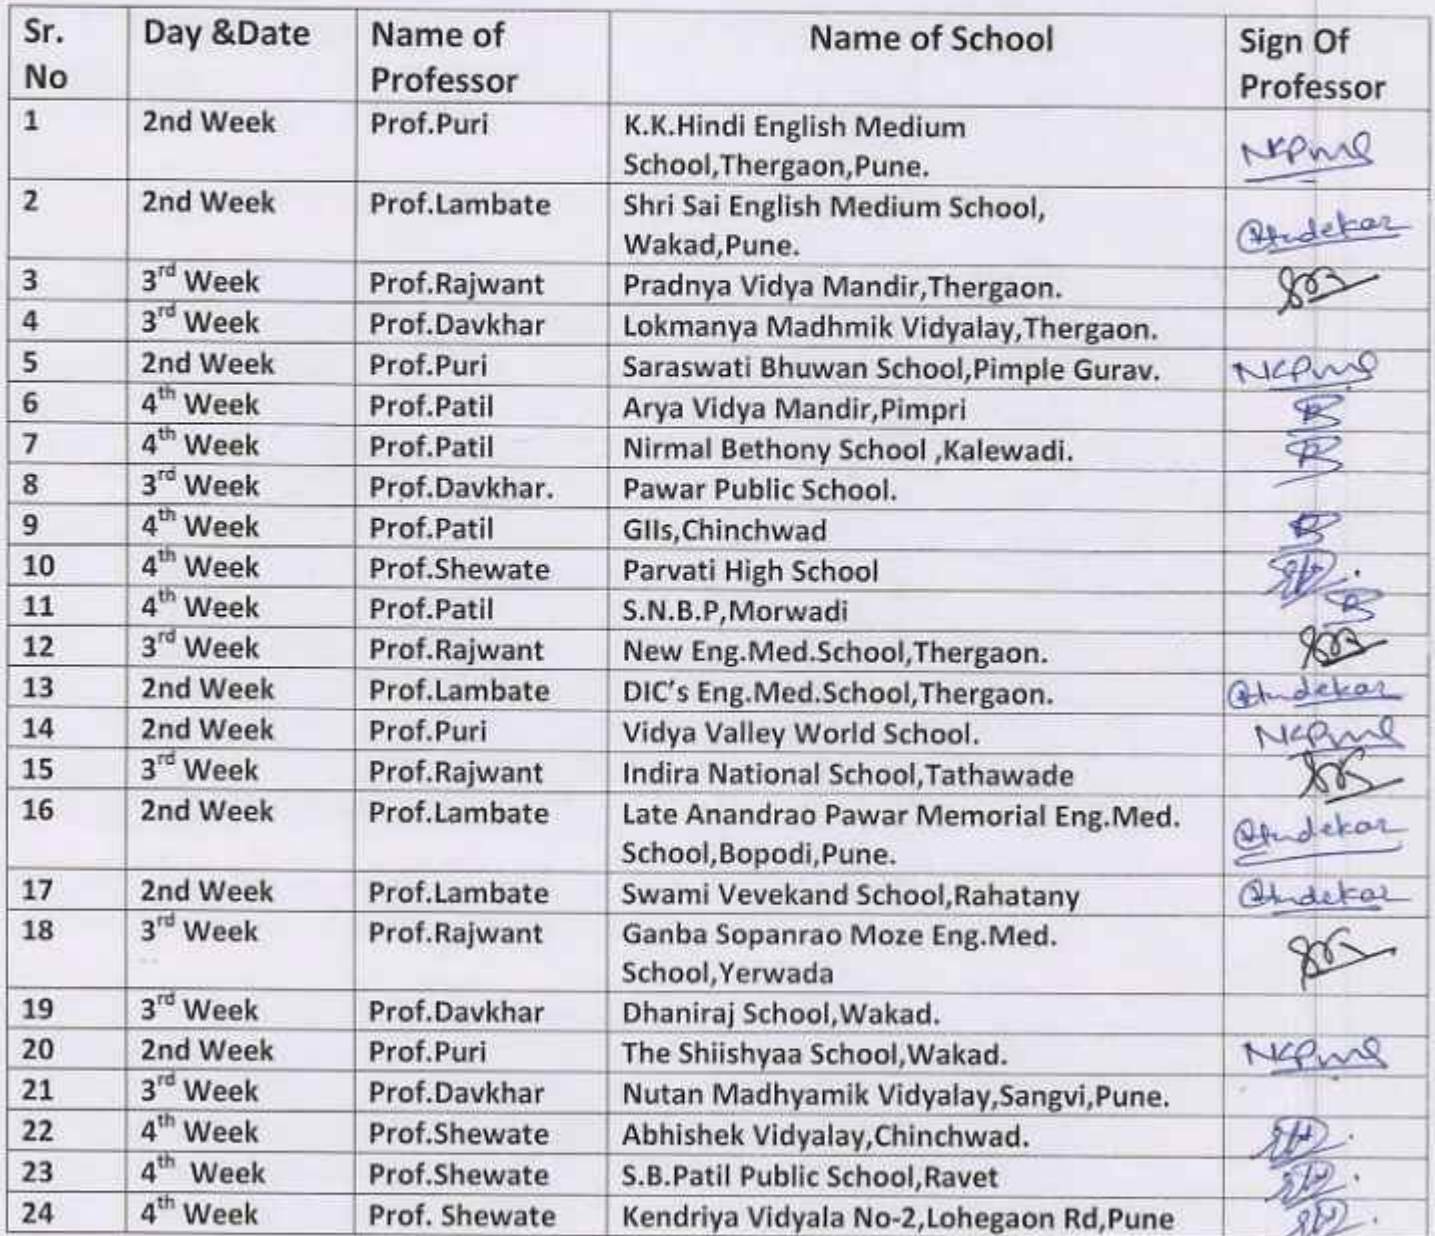 Sr. No Day &Date Name of Professor Name of School Sign Of Professor
1 2nd Week Prof.Puri K.K.Hindi English Medium
School,Thergaon,Pune.
2 2nd Week Prof.Lambate Shri Sai English Medium School,
Wakad,Pune.
3 3rd Week Prof.Rajwant Pradnya Vidya Mandir,Thergaon.
4 3rd Week Prof.Davkhar Lokmanya Madhmik Vidyalay,Thergaon.
5 2nd Week Prof.Puri Saraswati Bhuwan School,Pimple Gurav.
6 4th Week Prof.Patil Arya Vidya Mandir,Pimpri
7 4th Week Prof.Patil Nirmal Bethony School ,Kalewadi.
8 3rd Week Prof.Davkhar. Pawar Public School.
9 4th Week Prof.Patil GIIs,Chinchwad
10 4th Week Prof.Shewate Parvati High School
11 4th Week Prof.Patil S.N.B.P,Morwadi
12 3rd Week Prof.Rajwant New Eng.Med.School,Thergaon.
13 2nd Week Prof.Lambate DIC's Eng.Med.School,Thergaon.
14 2nd Week Prof.Puri Vidya Valley World School.
15 3rd Week Prof.Rajwant Indira National School,Tathawade
16 2nd Week Prof.Lambate Late Anandrao Pawar Memorial Eng.Med.
School,Bopodi,Pune.
17 2nd Week Prof.Lambate Swami Vevekand School,Rahatany
18 3rd Week Prof.Rajwant Ganba Sopanrao Moze Eng.Med.
School,Yerwada
19 3rd Week Prof.Davkhar Dhaniraj School,Wakad.
20 2nd Week Prof.Puri The Shiishyaa School,Wakad.
21 3rd Week Prof.Davkhar Nutan Madhyamik Vidyalay,Sangvi,Pune.
22 4th Week Prof.Shewate Abhishek Vidyalay,Chinchwad.
23 4th Week Prof.Shewate S.B.Patil Public School,Ravet
24 4th Week Prof. Shewate Kendriya Vidyala No-2,Lohegaon Rd,Pune